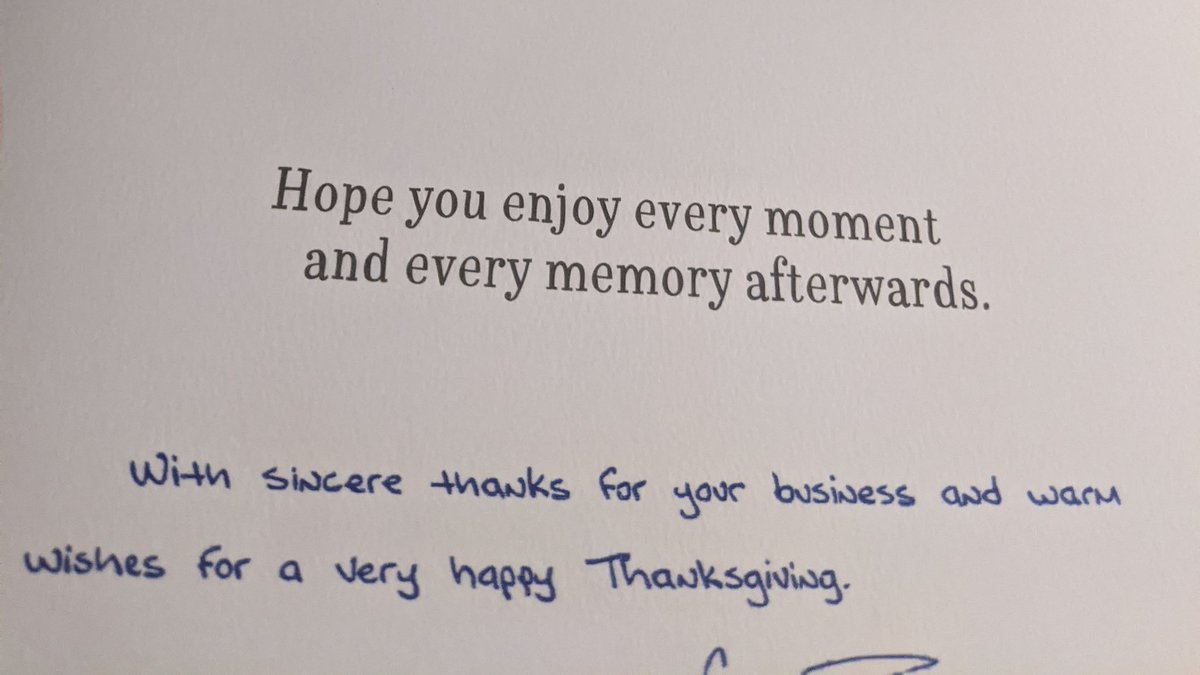 Hope you enjoy every moment
and every memory afterwards.
With sincere thanks for your business and warm
wishes for a very happy Thanksgiving.